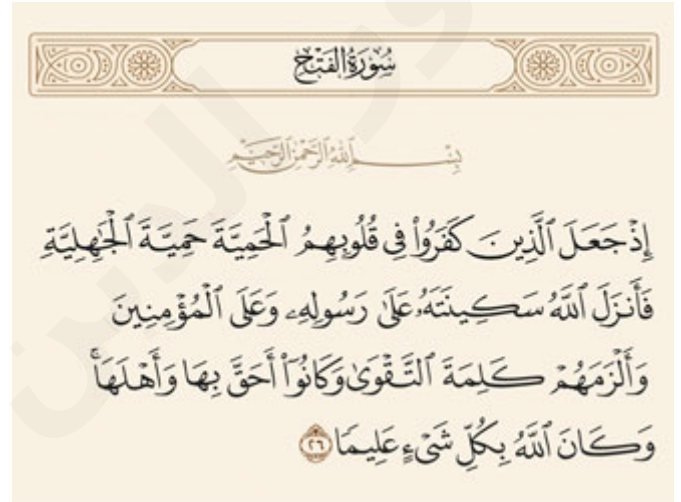 سُورَةُ الفَتۡحِ
بِسۡمِ ٱللَّهِ ٱلرَّحۡمَٰنِ ٱلرَّحِيمِ
إِذۡ جَعَلَ ٱلَّذِينَ كَفَرُواْ فِي قُلُوبِهِمُ ٱلۡحَمِيَّةَ حَمِيَّةَ ٱلۡجَٰهِلِيَّةِ
فَأَنزَلَ ٱللَّهُ سَكِينَتَهُۥ عَلَىٰ رَسُولِهِۦ وَعَلَى ٱلۡمُؤۡمِنِينَ
وَأَلۡزَمَهُمۡ كَلِمَةَ ٱلتَّقۡوَىٰ وَكَانُوٓاْ أَحَقَّ بِهَا وَأَهۡلَهَاۚ
وَكَانَ ٱللَّهُ بِكُلِّ شَيۡءٍ عَلِيمٗا ٢٦